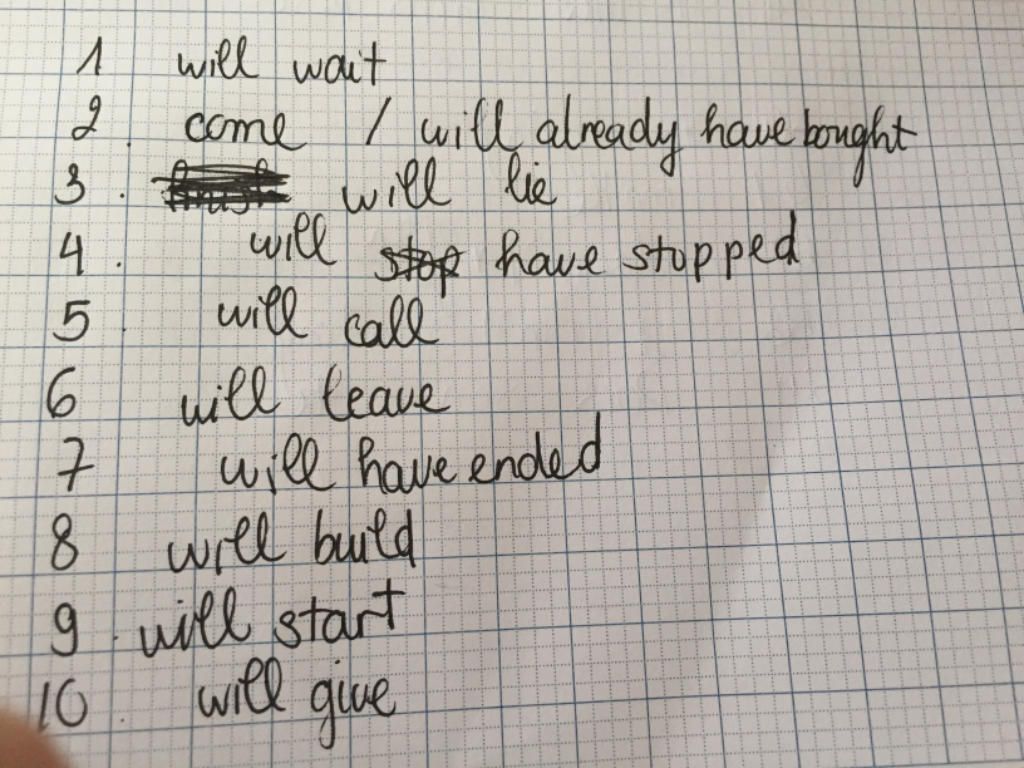 1 will wait
2. come / will already have bought
3. will lie
4. will have stopped
5. will call
6 will leave
7 will have ended
8 will build
9. will start
10. will give